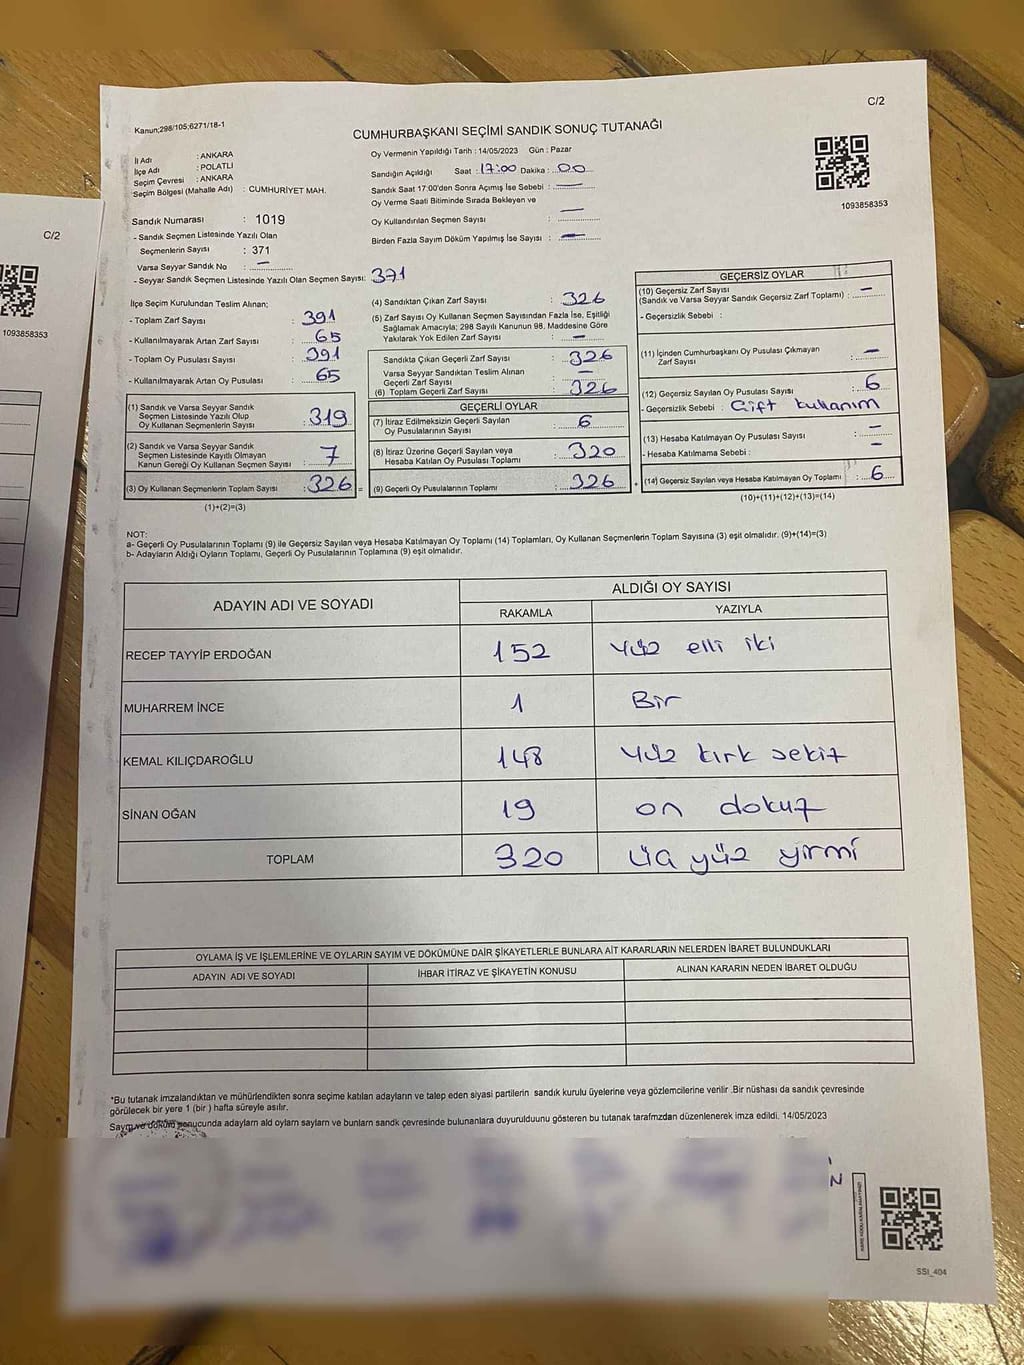 C/2
Kanun;298/105;6271/18-1
CUMHURBAŞKANI SEÇİMİ SANDIK SONUÇ TUTANAĞI
İl Adı : ANKARA
İlçe Adı : POLATLI
Seçim Çevresi : ANKARA
Seçim Bölgesi (Mahalle Adı) : CUMHURİYET MAH.
Oy Vermenin Yapıldığı Tarih : 14/05/2023 Gün : Pazar
Sandığın Açıldığı Saat : 17:00 Dakika : 00
Sandık Saat 17:00'den Sonra Açımış İse Sebebi : —
Oy Verme Saati Bitiminde Sırada Bekleyen ve
Oy Kullandırılan Seçmen Sayısı : —
Birden Fazla Sayım Döküm Yapılmış İse Sayısı : —
1093858353
Sandık Numarası : 1019
- Sandık Seçmen Listesinde Yazılı Olan
Seçmenlerin Sayısı : 371
Varsa Seyyar Sandık No : —
- Seyyar Sandık Seçmen Listesinde Yazılı Olan Seçmen Sayısı: 371
İlçe Seçim Kurulundan Teslim Alınan;
- Toplam Zarf Sayısı : 391
- Kullanılmayarak Artan Zarf Sayısı : 65
- Toplam Oy Pusulası Sayısı : 391
- Kullanılmayarak Artan Oy Pusulası : 65
(1) Sandık ve Varsa Seyyar Sandık
Seçmen Listesinde Yazılı Olup
Oy Kullanan Seçmenlerin Sayısı : 319
(2) Sandık ve Varsa Seyyar Sandık
Seçmen Listesinde Kayıtlı Olmayan
Kanun Gereği Oy Kullanan Seçmen Sayısı : 7
(3) Oy Kullanan Seçmenlerin Toplam Sayısı : 326 =
(1)+(2)=(3)
(4) Sandıktan Çıkan Zarf Sayısı : 326
(5) Zarf Sayısı Oy Kullanan Seçmen Sayısından Fazla İse, Eşitliği
Sağlamak Amacıyla; 298 Sayılı Kanunun 98. Maddesine Göre
Yakılarak Yok Edilen Zarf Sayısı : —
Sandıkta Çıkan Geçerli Zarf Sayısı : 326
Varsa Seyyar Sandıktan Teslim Alınan
Geçerli Zarf Sayısı : —
(6) Toplam Geçerli Zarf Sayısı : 326
GEÇERLİ OYLAR
(7) İtiraz Edilmeksizin Geçerli Sayılan
Oy Pusulalarının Sayısı : 6
(8) İtiraz Üzerine Geçerli Sayılan veya
Hesaba Katılan Oy Pusulası Toplamı : 320
(9) Geçerli Oy Pusulalarının Toplamı : 326 +
GEÇERSİZ OYLAR
(10) Geçersiz Zarf Sayısı
(Sandık ve Varsa Seyyar Sandık Geçersiz Zarf Toplamı) : —
- Geçersizlik Sebebi :
(11) İçinden Cumhurbaşkanı Oy Pusulası Çıkmayan
Zarf Sayısı : —
(12) Geçersiz Sayılan Oy Pusulası Sayısı : 6
- Geçersizlik Sebebi : Çift kullanım
(13) Hesaba Katılmayan Oy Pusulası Sayısı : —
- Hesaba Katılmama Sebebi : —
(14) Geçersiz Sayılan veya Hesaba Katılmayan Oy Toplamı : 6
(10)+(11)+(12)+(13)=(14)
NOT:
a- Geçerli Oy Pusulalarının Toplamı (9) ile Geçersiz Sayılan veya Hesaba Katılmayan Oy Toplamı (14) Toplamları, Oy Kullanan Seçmenlerin Toplam Sayısına (3) eşit olmalıdır. (9)+(14)=(3)
b- Adayların Aldığı Oyların Toplamı, Geçerli Oy Pusulalarının Toplamına (9) eşit olmalıdır.
ADAYIN ADI VE SOYADI
ALDIĞI OY SAYISI
RAKAMLA YAZIYLA
RECEP TAYYİP ERDOĞAN 152 Yüz elli iki
MUHARREM İNCE 1 Bir
KEMAL KILIÇDAROĞLU 148 Yüz kırk sekiz
SİNAN OĞAN 19 on dokuz
TOPLAM 320 üç yüz yirmi
OYLAMA İŞ VE İŞLEMLERİNE VE OYLARIN SAYIM VE DÖKÜMÜNE DAİR ŞİKAYETLERLE BUNLARA AİT KARARLARIN NELERDEN İBARET BULUNDUKLARI
ADAYIN ADI VE SOYADI İHBAR İTİRAZ VE ŞİKAYETİN KONUSU ALINAN KARARIN NEDEN İBARET OLDUĞU
*Bu tutanak imzalandıktan ve mühürlendikten sonra seçime katılan adayların ve talep eden siyasi partilerin sandık kurulu üyelerine veya gözlemcilerine verilir .Bir nüshası da sandık çevresinde
görülecek bir yere 1 (bir ) hafta süreyle asılır.
Sayım ve döküm sonucunda adayların ald oyların sayların ve bunların sandk çevresinde bulunanlara duyurulduunu gösteren bu tutanak tarafmzdan düzenlenerek imza edildi. 14/05/2023
N
SSI_404
C/2
1093858353